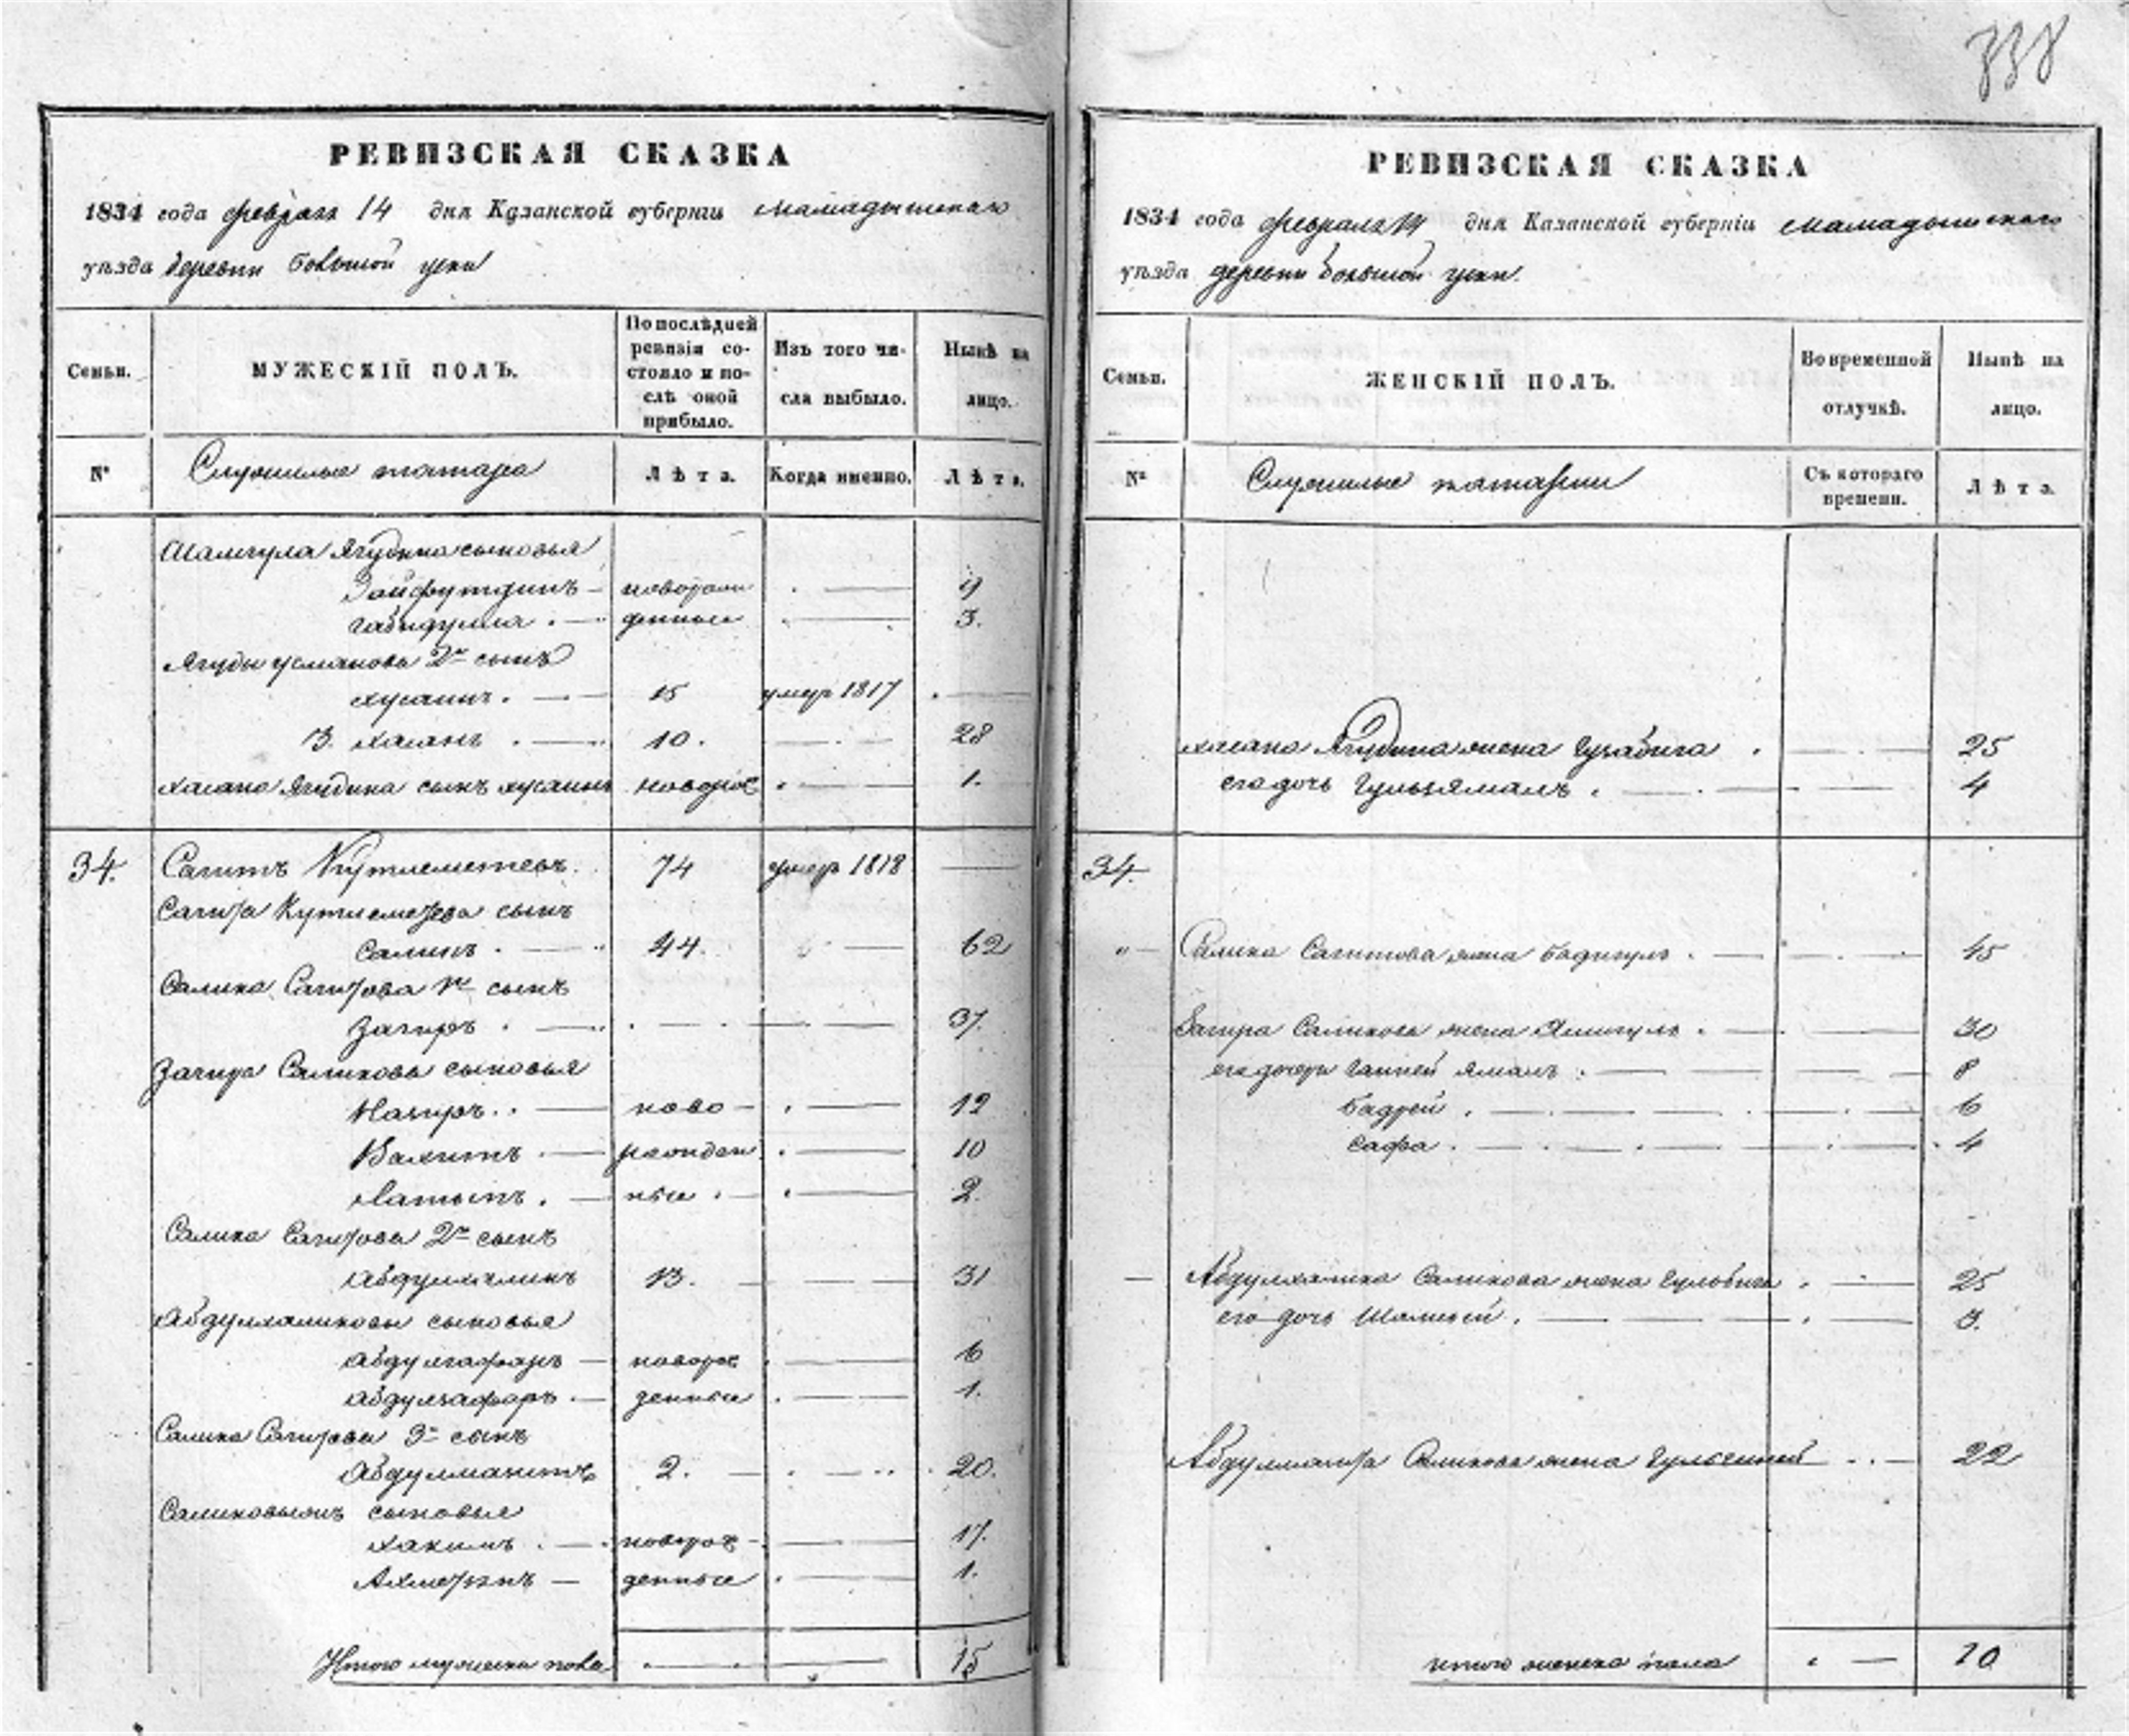 338
РЕВИЗСКАЯ СКАЗКА
1834 года февраля 14 дня Казанской губерніи Мамадышскаго
уѣзда деревни Большой
Семьи.
МУЖЕСКІЙ ПОЛЪ.
По послѣдней ревизіи состояло и послѣ оной прибыло.
Изъ того числа выбыло.
Нынѣ на лицо.
№ Служилые татара Лѣта. Когда именно. Лѣта.
Ягудина сыновья
новорож
Габидулла денные 3.
Ягуды Усманова 2й сынъ
Хусаинъ 15 умер 1817
3. Хасанъ 10. 28
Хасана Ягудина сынъ Хусаинъ новорож 1.
34. Сагитъ Кутлеметевъ 74 умер 1818
Сагита Кутлеметева сынъ
Салихъ 44. 62
Салиха Сагитова 1й сынъ
Загиръ 37.
Загира Салихова сыновья
Назиръ ново 12
Вахитъ рожден 10
Латыпъ ные 2.
Салиха Сагитова 2й сынъ
Абдулхаликъ 13. 31
Абдулхаликовы сыновья
Абдулгафаръ новорож 6
денные 1.
Салиха Сагитова 3й сынъ
2. 20.
сыновья
Хакимъ новорож 17.
денные 1.
Итого мужеска пола 15
РЕВИЗСКАЯ СКАЗКА
1834 года февраля 14 дня Казанской губерніи Мамадышскаго
уѣзда деревни Большой
Семьи.
ЖЕНСКІЙ ПОЛЪ.
Во временной отлучкѣ.
Нынѣ на лицо.
№ Служилые татарки Съ котораго времени. Лѣта.
Хасана Ягудина жена 25
его дочь Гульзямалъ 4
34.
Салиха Сагитова жена Бадигулъ 45
Загира Салихова жена 30
его дочери Ямалъ 8
Бадрей 6
Сафа 4
Абдулхалика Салихова жена Гульбига 25
его дочь 3.
Салихова жена 22
итого женска пола 10